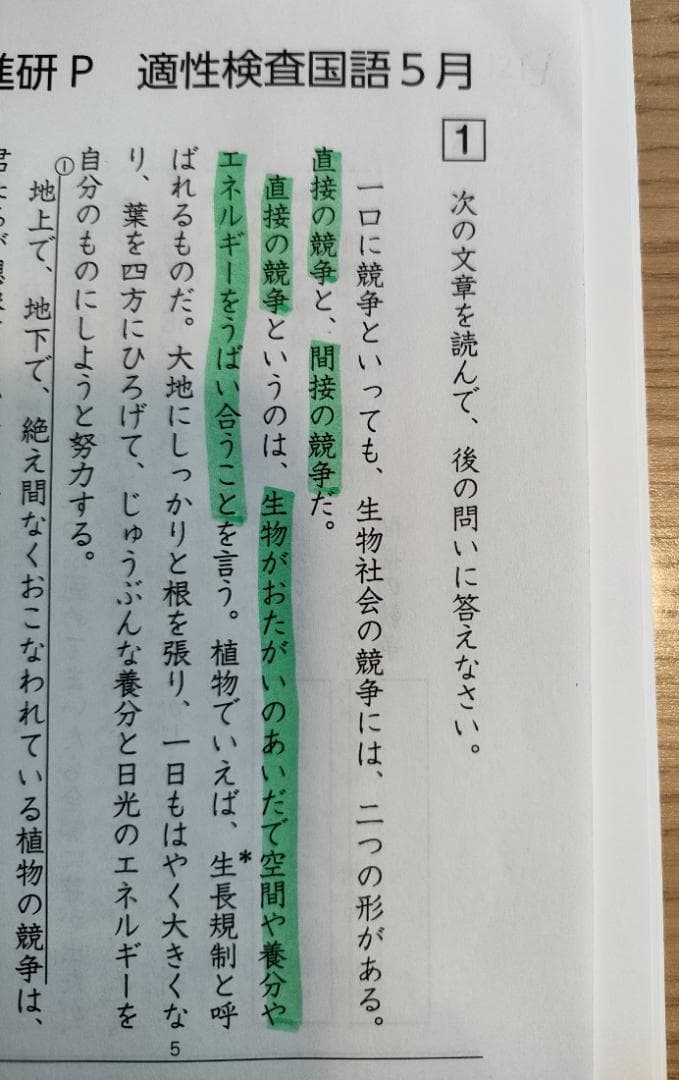 進研P 適性検査国語5月
1
次の文章を読んで、後の問いに答えなさい。
一口に競争といっても、生物社会の競争には、二つの形がある。
直接の競争と、間接の競争だ。
直接の競争というのは、生物がおたがいのあいだで空間や養分や
エネルギーをうばい合うことを言う。植物でいえば、*生長規制と呼
ばれるものだ。大地にしっかりと根を張り、一日もはやく大きくな
り、葉を四方にひろげて、じゅうぶんな養分と日光のエネルギーを
自分のものにしようと努力する。
①地上で、地下で、絶え間なくおこなわれている植物の競争は、
5